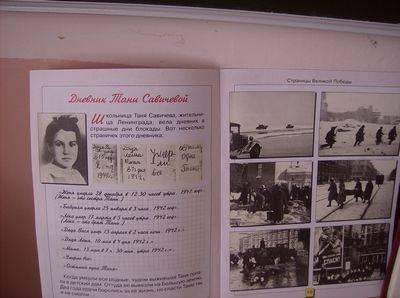 Дневник Тани Савичевой
Школьница Таня Савичева, жительни-
ца Ленинграда, вела дневник в
страшные дни блокады. Вот несколько
страничек этого дневника.
Умер
ли
все
«Женя умерла 28 декабря в 12.30 часов утра 1941 год»
(Женя — это сестра Тани.)
«Бабушка умерла 25 января в 3 часа 1942 год»
«Лека умер 17 марта в 5 часов утра 1942 год»
(Лека — это брат Тани.)
«Дядя Вася умер 13 апреля в 2 часа ночи 1942 г.»
«Дядя Леша, 10 мая в 4 дня 1942 г.»
«Мама 13 мая в 7 ч. 30 мин. утра 1942 г.»
«Умерли все»
«Осталась одна Таня»
Когда умерли все родные, чудом выжившая Таня попа-
ла в детский дом. Оттуда её вывезли на Большую землю.
Два года врачи боролись за её жизнь, но спасти Таню так
и не смогли.
Страницы Великой Победы